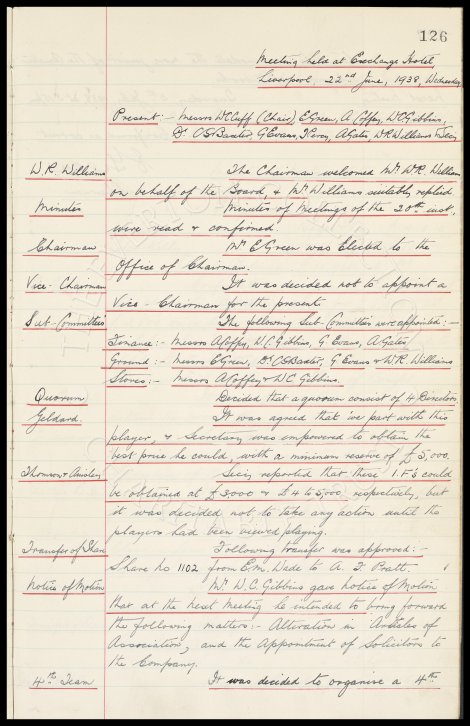 126
Meeting held at Exchange Hotel,
Liverpool, 22nd June, 1938, Wednesday
Present:- Messrs W.C. Cuff (Chair) E Green, A Coffey, W.C. Gibbins,
Dr C.S. Baxter, G Evans, A Gates, W.R. Williams
W.R. Williams
The Chairman welcomed Mr W.R. Williams
on behalf of the Board, & Mr Williams suitably replied
Minutes
Minutes of Meetings of the 20th inst,
were read & confirmed.
Chairman
Mr E Green was Elected to the
Office of Chairman.
Vice-Chairman
It was decided not to appoint a
Vice-Chairman for the present.
Sub-Committees
The following Sub-Committees were appointed:-
Finance:- Messrs A Coffey, W.C. Gibbins, G Evans, A Gates
Ground:- Messrs E Green, Dr C.S. Baxter, G Evans & W.R. Williams
Stores:- Messrs A Coffey & W.C. Gibbins.
Quorum
Decided that a quorum consist of 4 Directors.
Geldard.
It was agreed that we part with this
player, & Secretary was empowered to obtain the
best price he could, with a minimum reserve of £5,000.
Thomson & Ainsley
Secy. reported that these I.F.s could
be obtained at £3000 & £4 to 5,000 respectively, but
it was decided not to take any action until the
players had been viewed playing.
Transfer of Share
Following transfer was approved:-
Share No 1102 from E.M. Wade to A. J. Pratt.
Notice of Motion
Mr W.C. Gibbins gave notice of Motion
that at the next meeting he intended to bring forward
the following matters:- Alteration in Articles of
Association, and the Appointment of Solicitors to
the Company.
4th Team
It was decided to organise a 4th